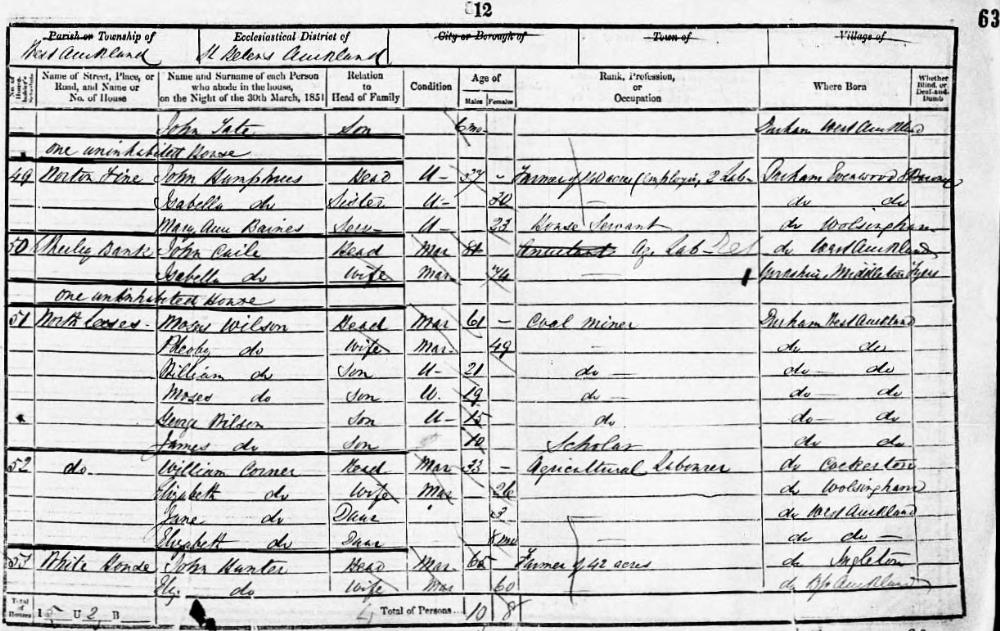 12
63
Parish or Township of Ecclesiastical District of City or Borough of Town of Village of
West Auckland St Helens Auckland
No. of Householder's Schedule Name of Street, Place, or Road, and Name or No. of House Name and Surname of each Person who abode in the house, on the Night of the 30th March, 1851 Relation to Head of Family Condition Age of Males Females Rank, Profession, or Occupation Where Born Whether Blind, or Deaf-and-Dumb
John Tate Son 6 mo Durham West Auckland
one uninhabited House
49 John Humphres Head U - 37 - Farmer of acres 2 Lab Durham Evenwood
Isabella do Sister U - 30 do do
Mary Ann Baines Serv U - 23 House Servant do Wolsingham
50 Bank John Caile Head Mar Ag. Lab do West Auckland
Isabella do Wife Mar 74 - Yorkshire Middleton Tyas
one uninhabited House
51 North leeses - Moses Wilson Head Mar 61 - Coal Miner Durham West Auckland
do Wife Mar - 49 - do do
William do Son U - 21 do - do - do
Moses do Son U. 19 do - do - do
George Wilson Son U - 15 do do - do
James do Son 10 Scholar do do
52 do William Corner Head Mar 33 - Agricultural Labourer do Cockerton
Elizabeth do Wife Mar 26 do Wolsingham
Jane do Daur 3 do West Auckland
Elizabeth do Daur 8 mo do do -
53 White House John Hunter Head Mar 65 Farmer of 42 acres do Ingleton
Eliz. do Wife Mar 60 do Bp Auckland
Total of Houses I 5 U 2 B Total of Persons... 10 8